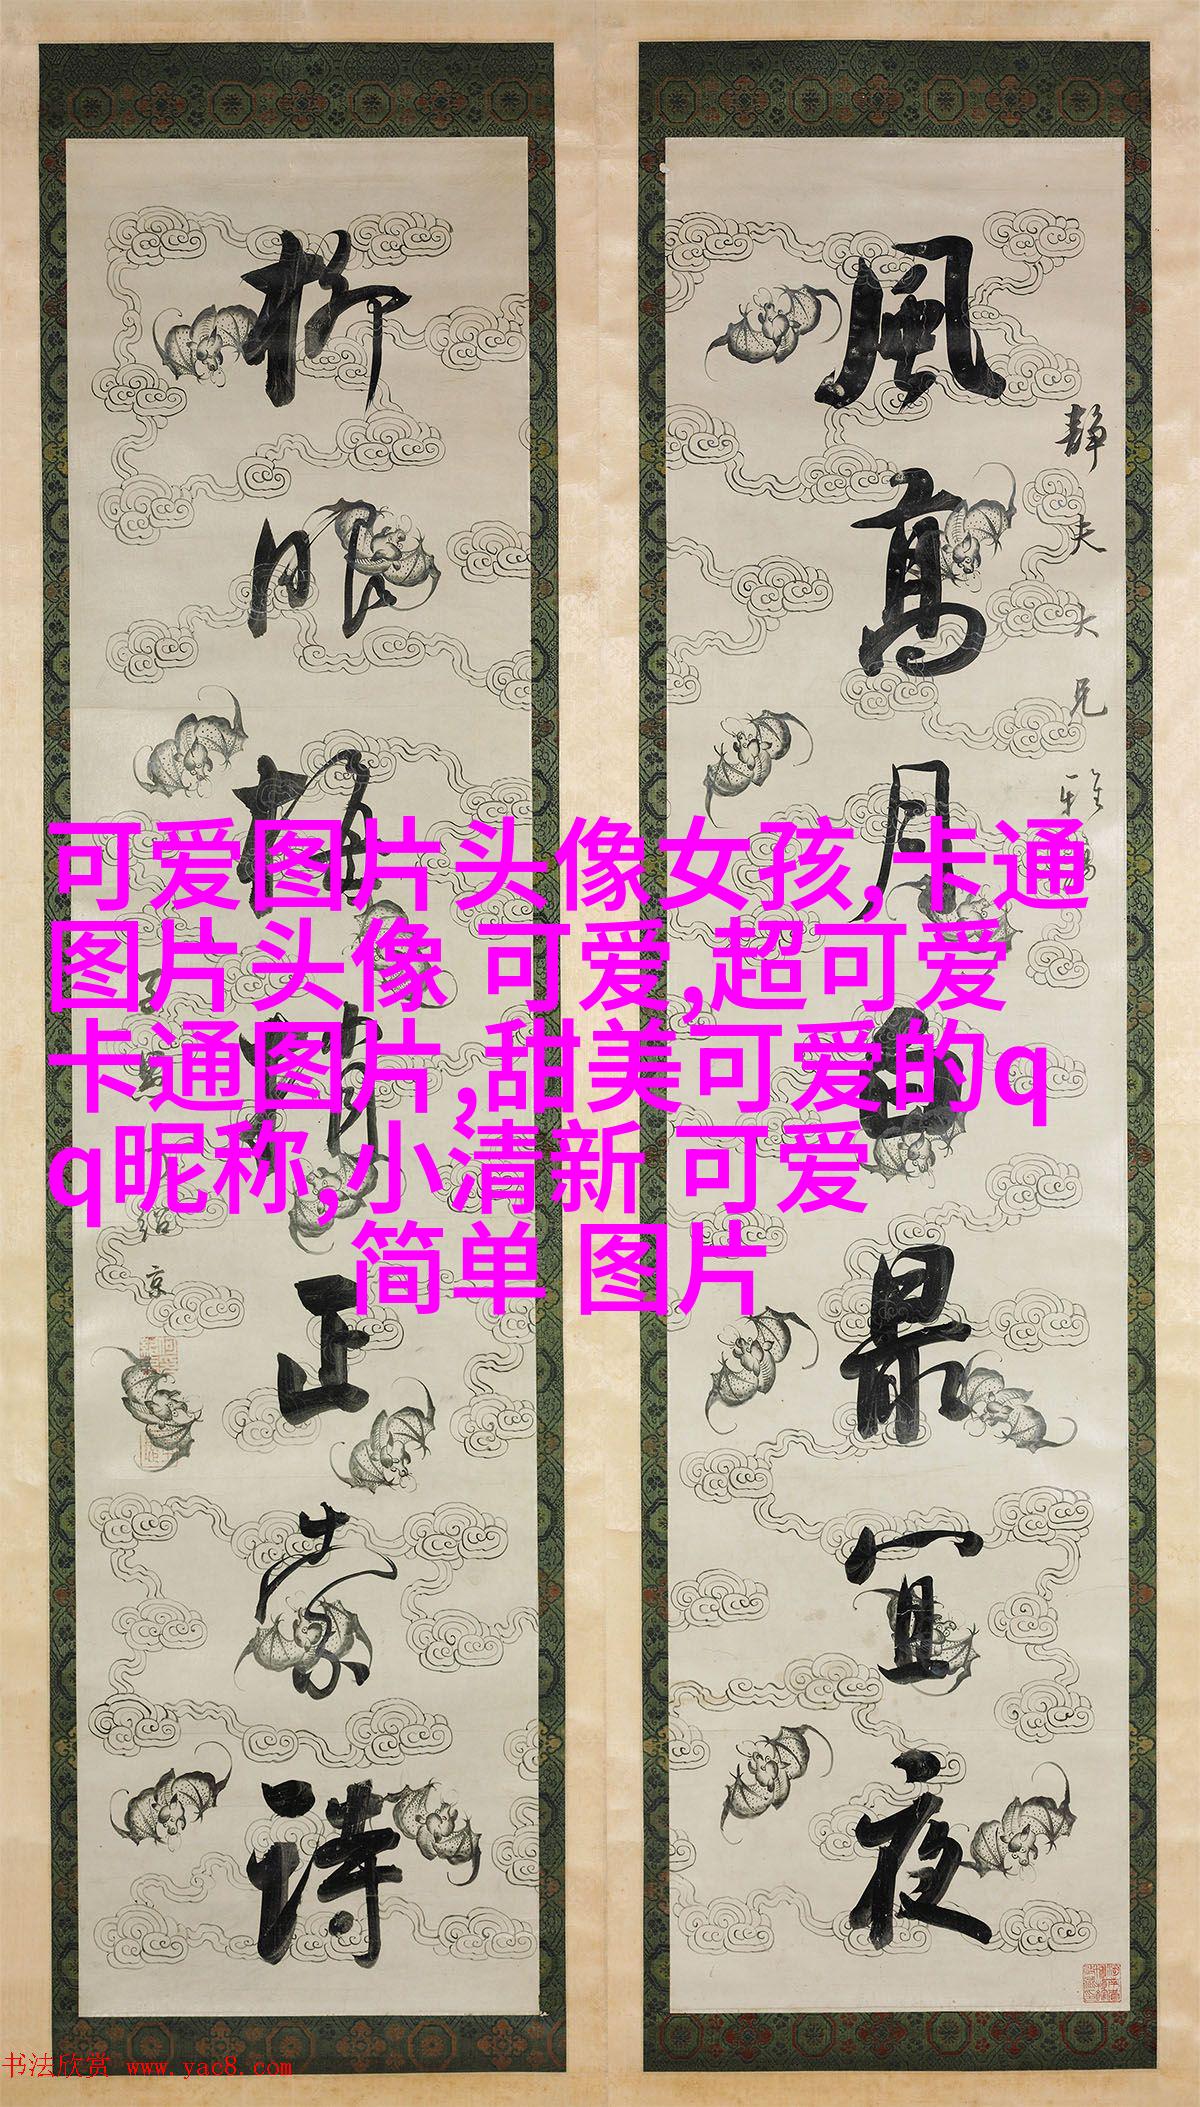 風高月白最宜夜
静夫大兄雅
柳眼梅情正索詩
紹京
可爱图片头像女孩,卡通
图片头像 可爱,超可爱
卡通图片,甜美可爱的q
q昵称,小清新 可爱
简单 图片
书法欣赏 www.yac8.com